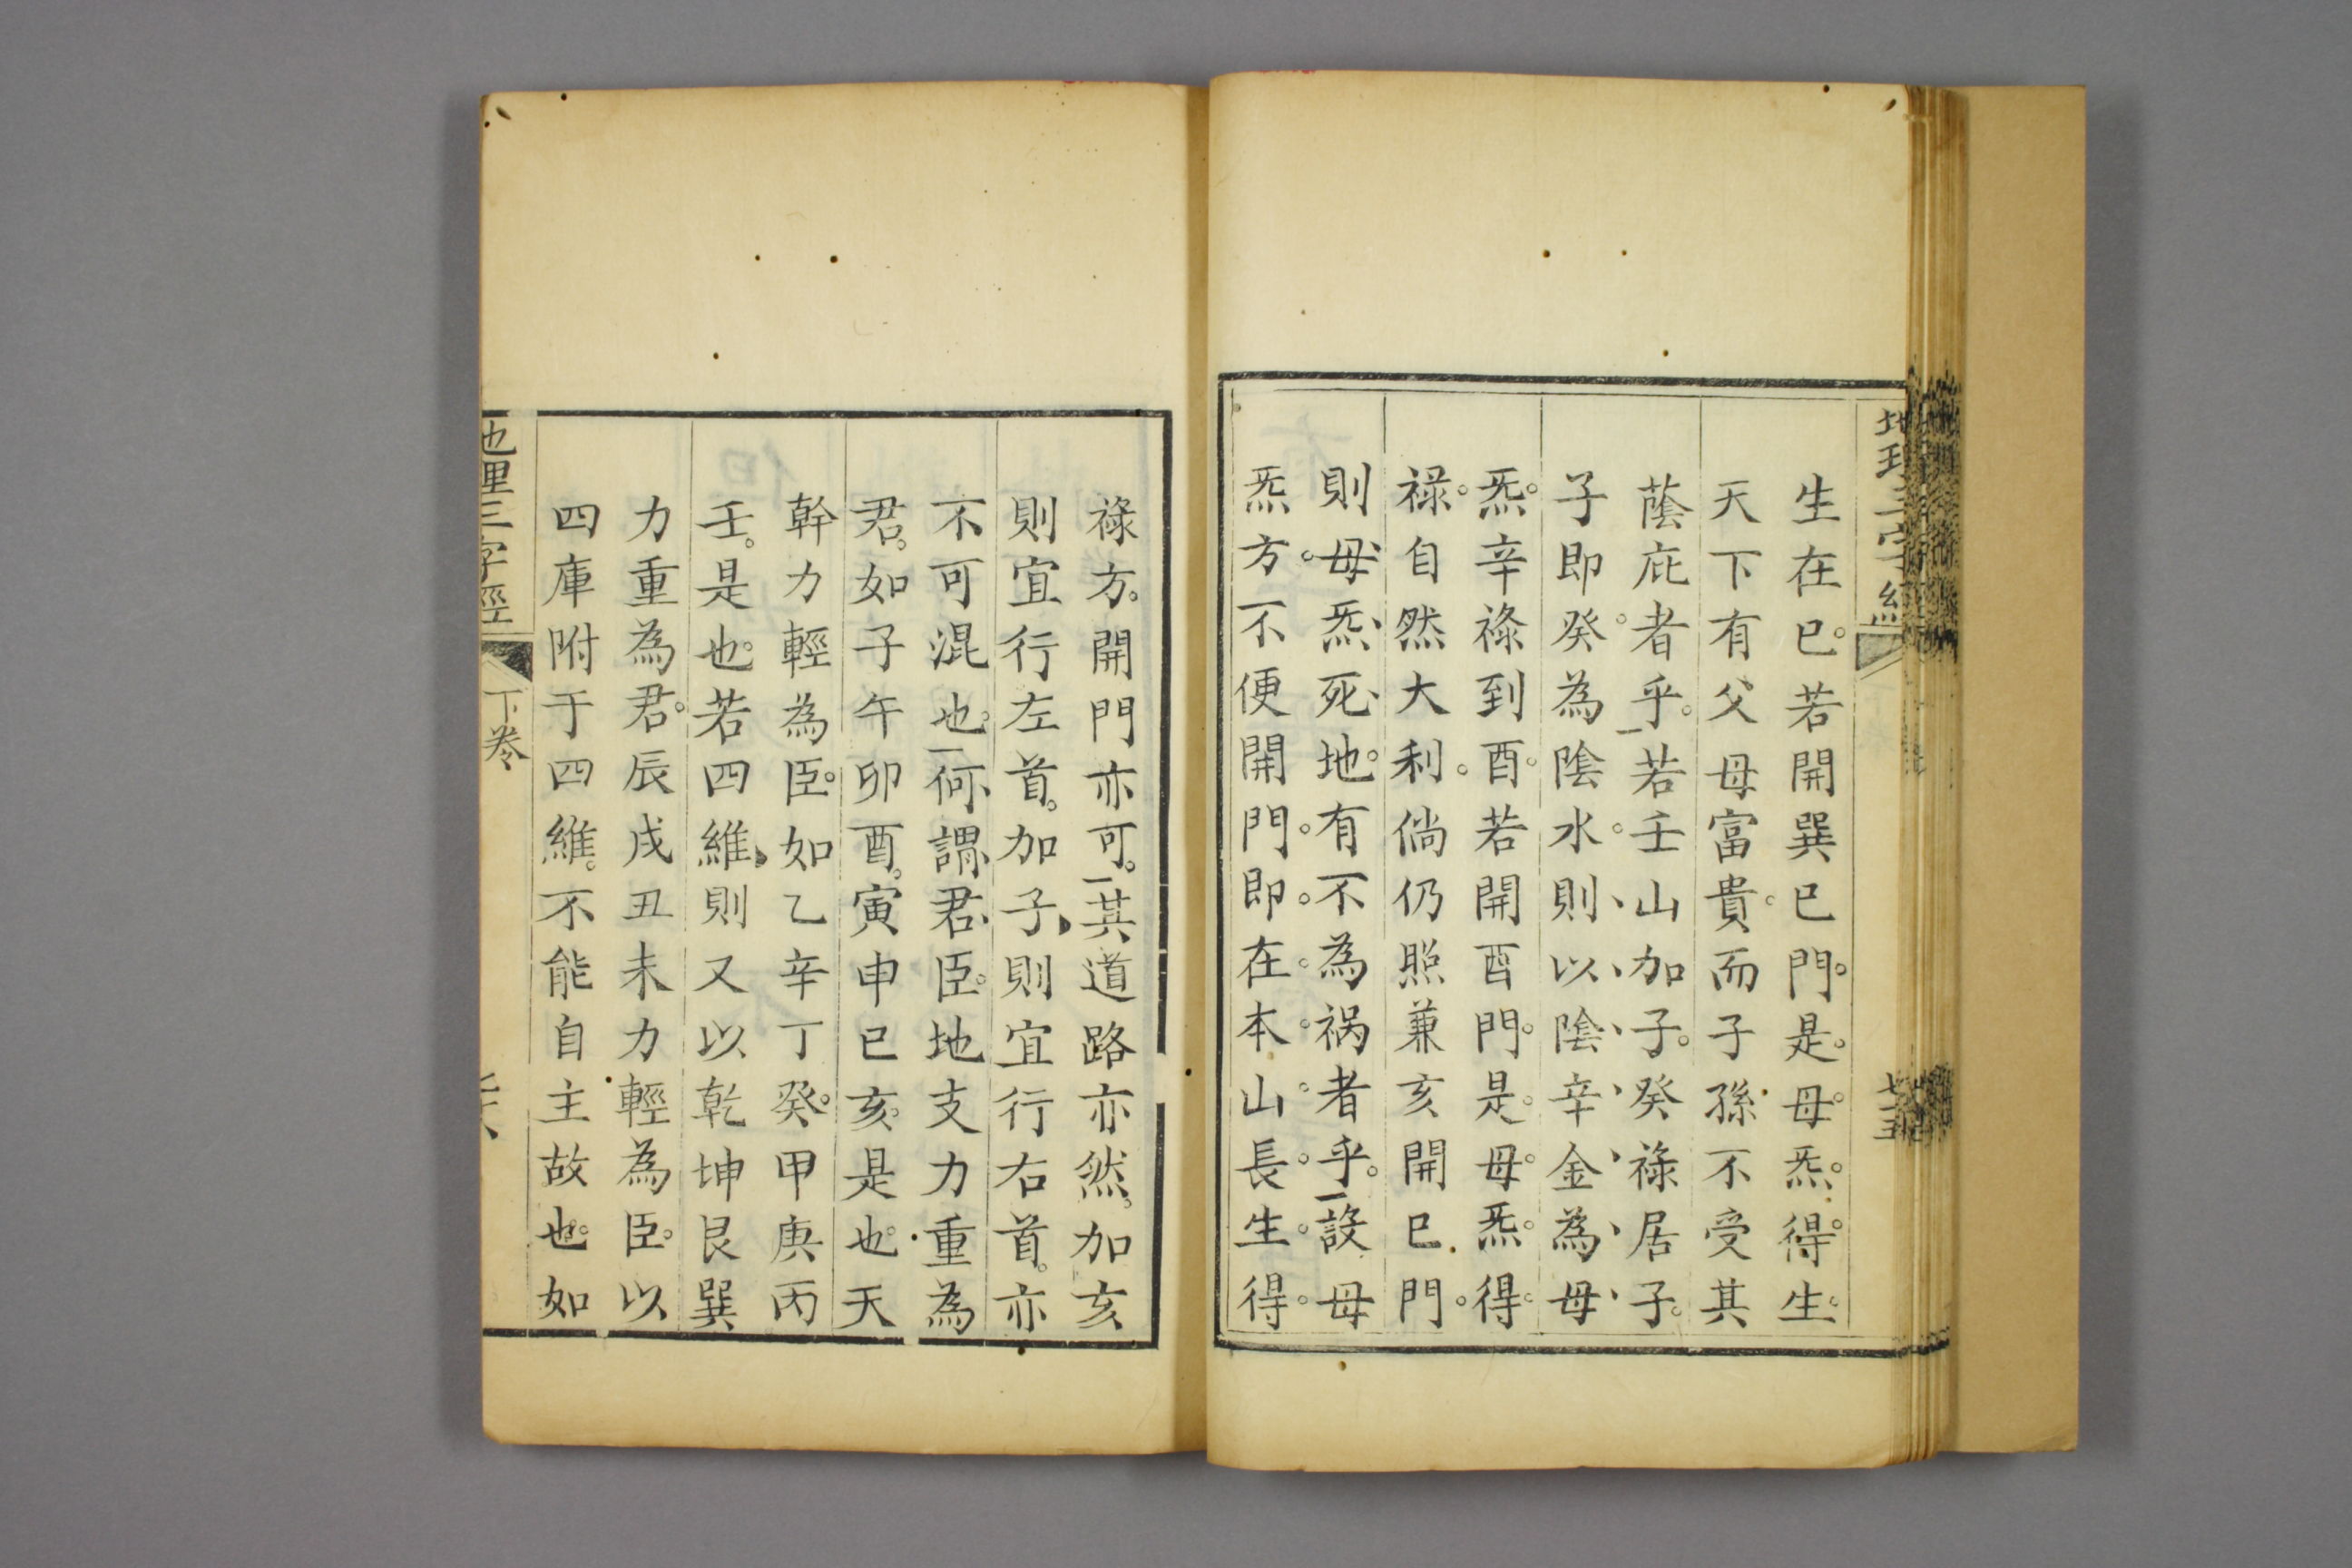 地理三字經
七十五
生在巳若開巽巳門是母炁得生
天下有父母富貴而子孫不受其
蔭庇者乎若壬山加子癸祿居子
子即癸為陰水則以陰辛金為母
炁辛祿到酉酉若開酉門是母炁得
祿自然大利倘仍照兼亥開巳門
則母炁死地有不為禍者乎設母
炁方不便開門即在本山長生得
祿方開門亦可其道路亦然加亥
則宜行左首加子則宜行右首亦
不可混也何謂君臣地支力重為
君如子午卯酉寅申巳亥是也天
幹力輕為臣如乙辛丁癸甲庚丙
壬是也若四維則又以乾坤艮巽
力重為君辰戌丑未力輕為臣以
四庫附于四維不能自主故也如
地理三字經
下卷